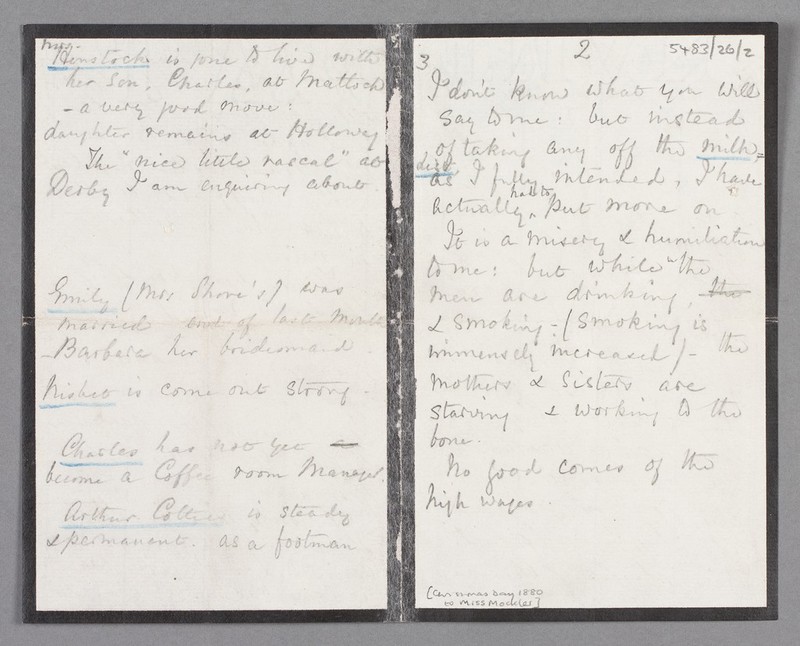 Mrs.
Henstock is gone to live with
her son, Charles, at Matlock
- a very good move:
daughter remains at Holloway
The "nice little rascal" at
Derby I am enquiring about.
Emily (Mrs Shore's) was
married end of last month
- Barbara her bridesmaid.
Nisbet is come out strong -
Charles has not yet
become a Coffee room Manager.
Arthur Cottier is steady
& permanent. as a footman
3
2
5483/26/2
I don't know what you will
say to me: but instead
of taking any off the milk=
diet
as I fully intended, I have
had to
actually put more on.
It is a misery & humiliation
to me: but while "the
men are drinking, the
& smoking - (smoking is
immensely increased) - the
mothers & sisters are
starving & working to the
bone.
No good comes of the
high wages.
[Christmas Day 1880
to Miss Mochler]